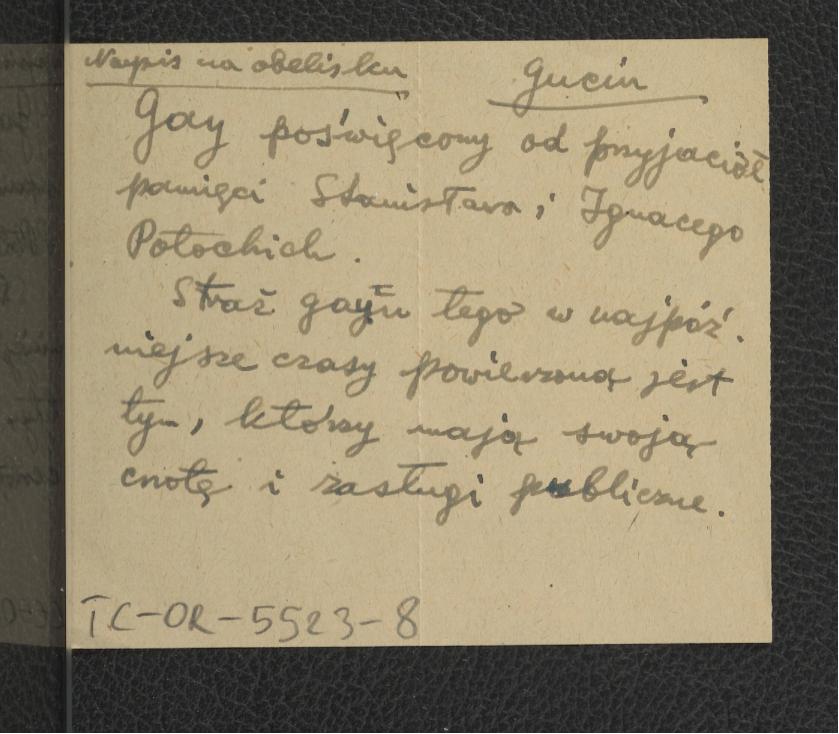 Napis na obelisku
Gucin
Gay poświęcony od przyjaciół
pamięci Stanisława i Ignacego
Potockich.
Straż gayu tego w najpóź-
niejsze czasy powierzoną jest
tym, którzy mają swoją
cnotę i zasługi publiczne.
TC-OR-5523-8